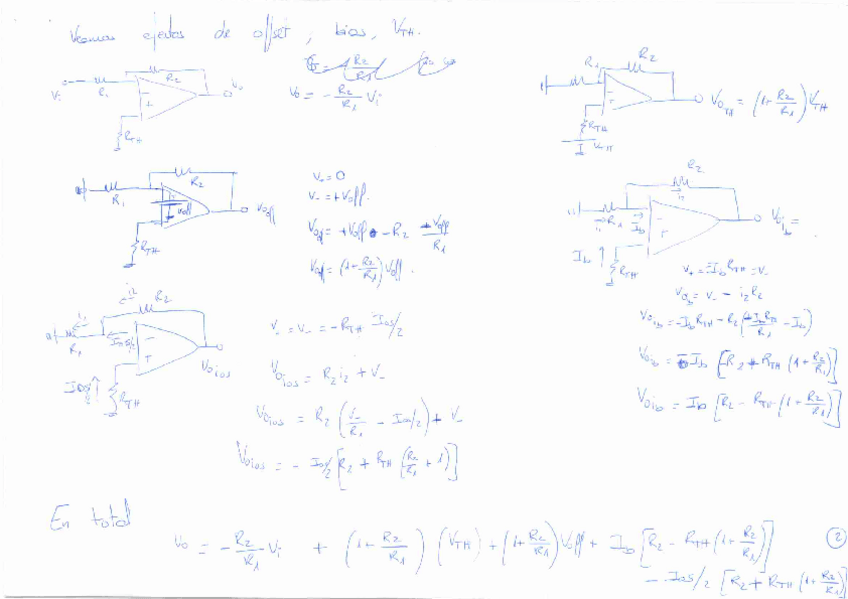 Veamos efectos de offset, bias, V_TH.
Vi
R1
R2
Vo
R_TH
Vo = - R2/R1 Vi
R1
R2
R_TH
V_TH
Vo_TH = (1 + R2/R1) V_TH
R1
R2
Voff
Voff
R_TH
V+ = 0
V- = +Voff.
Voff = +Voff - R2 +Voff/R1
Voff = (1 + R2/R1) Voff.
R2
i2
i1
R1
Ib
Ib
R_TH
Vo_ib =
V+ = -Ib R_TH = V-
Vo_ib = V- - i2 R2
Vo_ib = -Ib R_TH - R2 (+Ib R_TH/R1 - Ib)
Vo_ib = Ib [-R2 + R_TH (1 + R2/R1)]
Vo_ib = Ib [R2 - R_TH (1 + R2/R1)]
i2
R2
i1
R1
Ios/2
Vo_ios
R_TH
V- = V- = -R_TH Ios/2
Vo_ios = R2 i2 + V-
Vo_ios = R2 (V-/R1 - Ios/2) + V-
Vo_ios = - Ios/2 [R2 + R_TH (R2/R1 + 1)]
En total
Vo = - R2/R1 Vi + (1 + R2/R1) (V_TH) + (1 + R2/R1) Voff + Ib [R2 - R_TH (1 + R2/R1)]
- Ios/2 [R2 + R_TH (1 + R2/R1)]
2